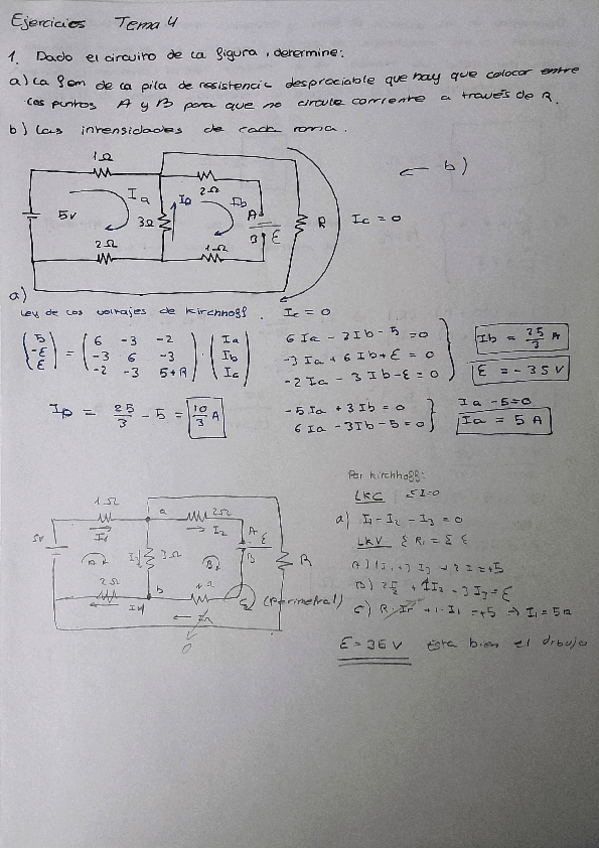 Ejercicios Tema 4
1. Dado el circuito de la figura, determine:
a) La fem de la pila de resistencia despreciable que hay que colocar entre
los puntos A y B para que no circule corriente a través de R.
b) Las intensidades de cada rama.
1Ω
2Ω
← b)
Ia
ID
Ib
5V
3Ω
A
B
ε
R
Ic = 0
2Ω
1Ω
a)
Ley de los voltajes de Kirchhoff. Ic = 0
(5 -ε ε) = (6 -3 -2 -3 6 -3 -2 -3 5+R) · (Ia Ib Ic)
6Ia - 3Ib - 5 = 0
-3Ia + 6Ib + ε = 0
-2Ia - 3Ib - ε = 0
Ib = 25/3 A
ε = -35V
ID = 25/3 - 5 = 10/3 A
-5Ia + 3Ib = 0
6Ia - 3Ib - 5 = 0
Ia - 5 = 0
Ia = 5 A
Por Kirchhoff:
LKC Σ I=0
a) I1 - I2 - I3 = 0
LKV
1Ω
a
2Ω
I1
I2
A
ε
B
5V
3Ω
R
2Ω
b
(perimetral)
→ I1 = 5A
ε = 35V Esta bien el dibujo